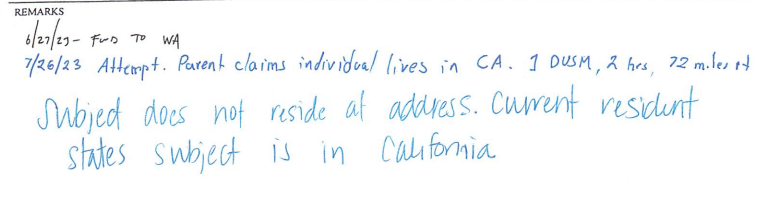 REMARKS
6/27/23 - FWD TO WA
7/26/23 Attempt. Parent claims individual lives in CA. 1 DUSM, 2 hrs, 72 miles rt
Subject does not reside at address. Current resident
states subject is in California